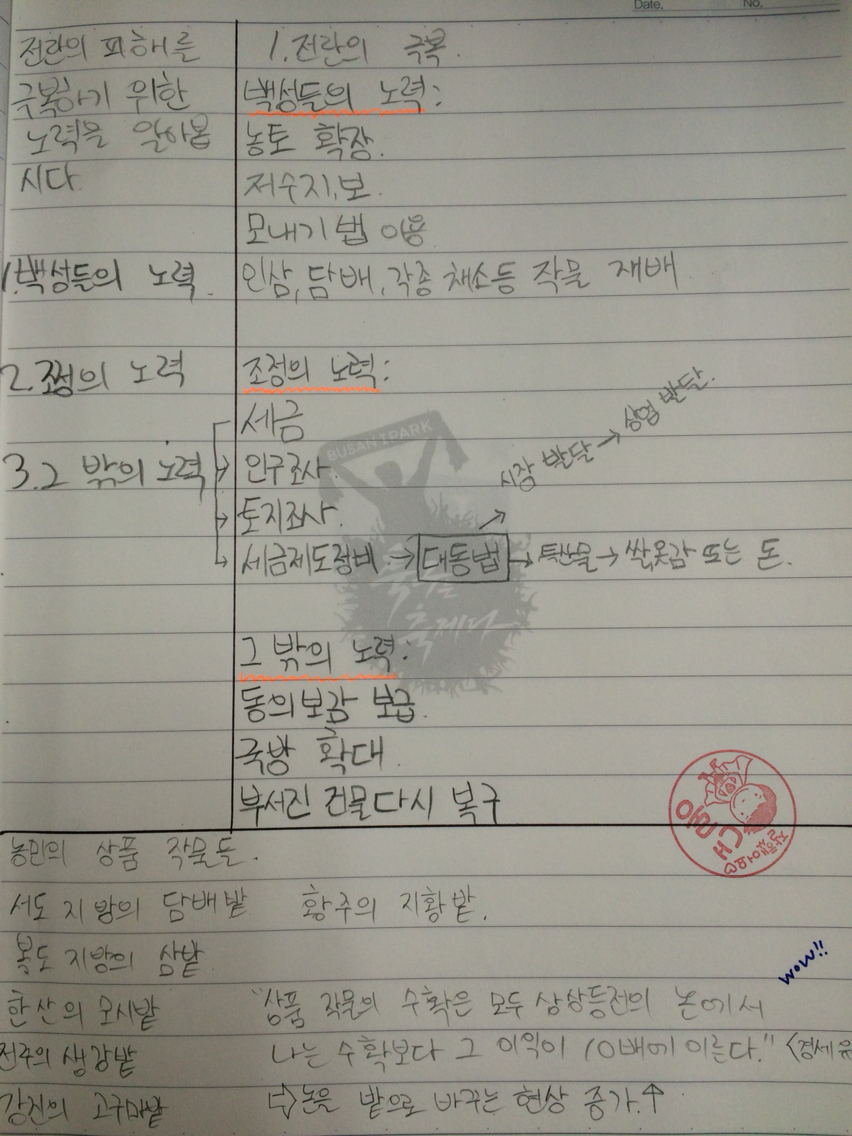 Date. No.
전란의 피해를
극복하기 위한
노력을 알아봅
시다.
1.백성들의 노력.
2.조정의 노력
3.그 밖의 노력
1.전란의 극복.
백성들의 노력:
농토 확장.
저수지,보.
모내기법 이용
인삼,담배,각종 채소등 작물 재배
조정의 노력:
세금
→ 인구조사.
→ 토지조사.
→ 세금제도정비 → 대동법 → 특산물 → 쌀,옷감 또는 돈.
→ 시장 발달 → 상업 발달.
BUSAN I'PARK
축제다
그 밖의 노력:
동의보감 보급.
국방 확대.
부서진 건물다시 복구
농민의 상품 작물들.
서도 지방의 담배밭 황주의 지황밭.
북도 지방의 삼밭
한산의 모시밭
전주의 생강밭
강진의 고구마밭
wow!!
"상품 작물의 수확은 모두 상상등전의 논에서
나는 수확보다 그 이익이 10배에 이른다." <경세유
⇨논을 밭으로 바꾸는 현상 증가.↑
참잘했어요